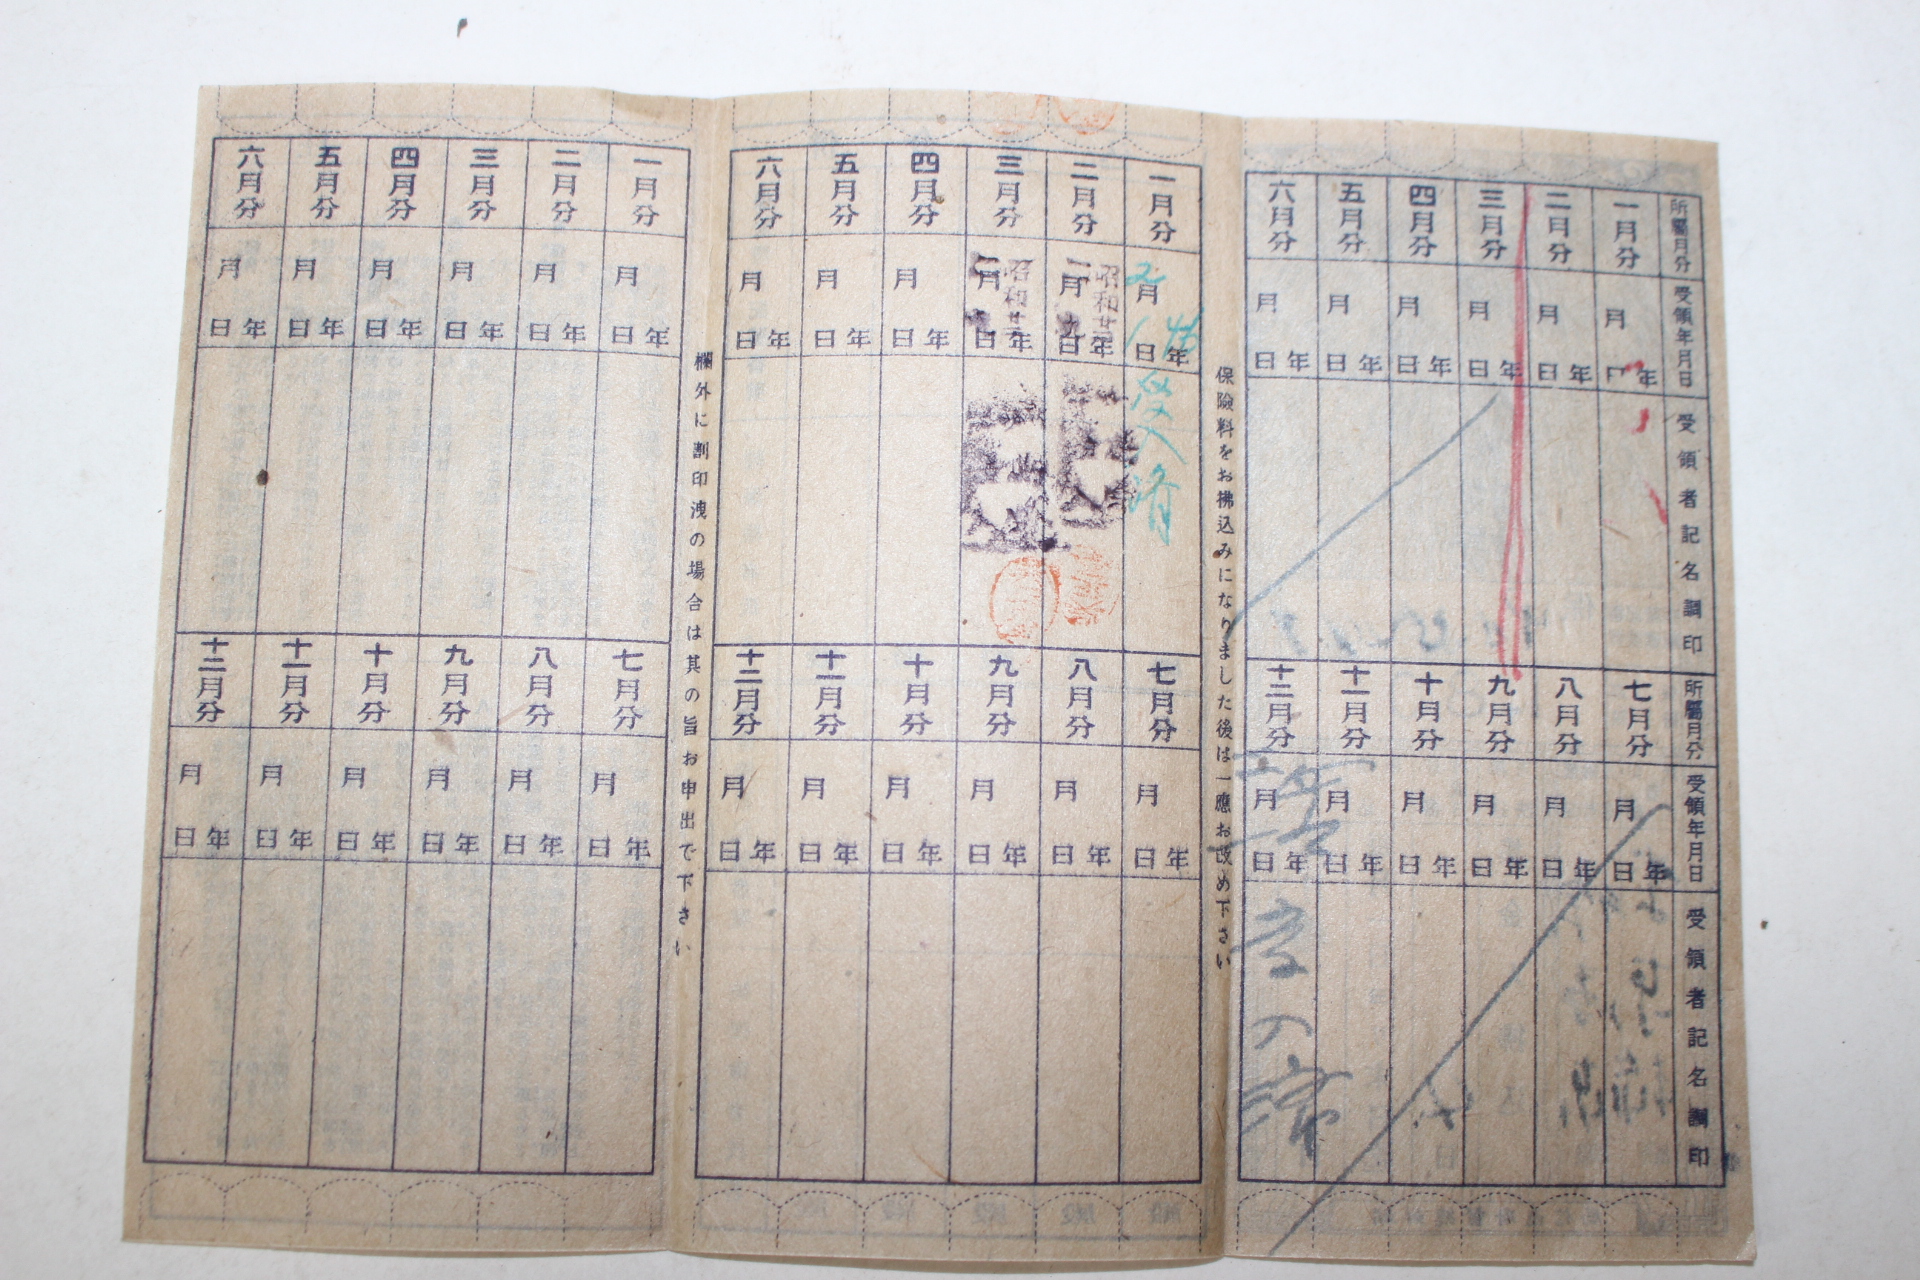 所屬月分
受領年月日
受領者記名調印
一月分
月
年
日
二月分
月
年
日
三月分
月
年
日
四月分
月
年
日
五月分
月
年
日
六月分
月
年
日
所屬月分
受領年月日
受領者記名調印
七月分
月
年
日
八月分
月
年
日
九月分
月
年
日
十月分
月
年
日
十一月分
月
年
日
十二月分
月
年
日
保險料をお拂込みになりました後は一應お改め下さい
一月分
月
年
日
二月分
昭和廿
月
年
日
三月分
昭和廿
月
年
日
四月分
月
年
日
五月分
月
年
日
六月分
月
年
日
七月分
月
年
日
八月分
月
年
日
九月分
月
年
日
十月分
月
年
日
十一月分
月
年
日
十二月分
月
年
日
欄外に割印洩の場合は其の旨お申出で下さい
一月分
月
年
日
二月分
月
年
日
三月分
月
年
日
四月分
月
年
日
五月分
月
年
日
六月分
月
年
日
七月分
月
年
日
八月分
月
年
日
九月分
月
年
日
十月分
月
年
日
十一月分
月
年
日
十二月分
月
年
日